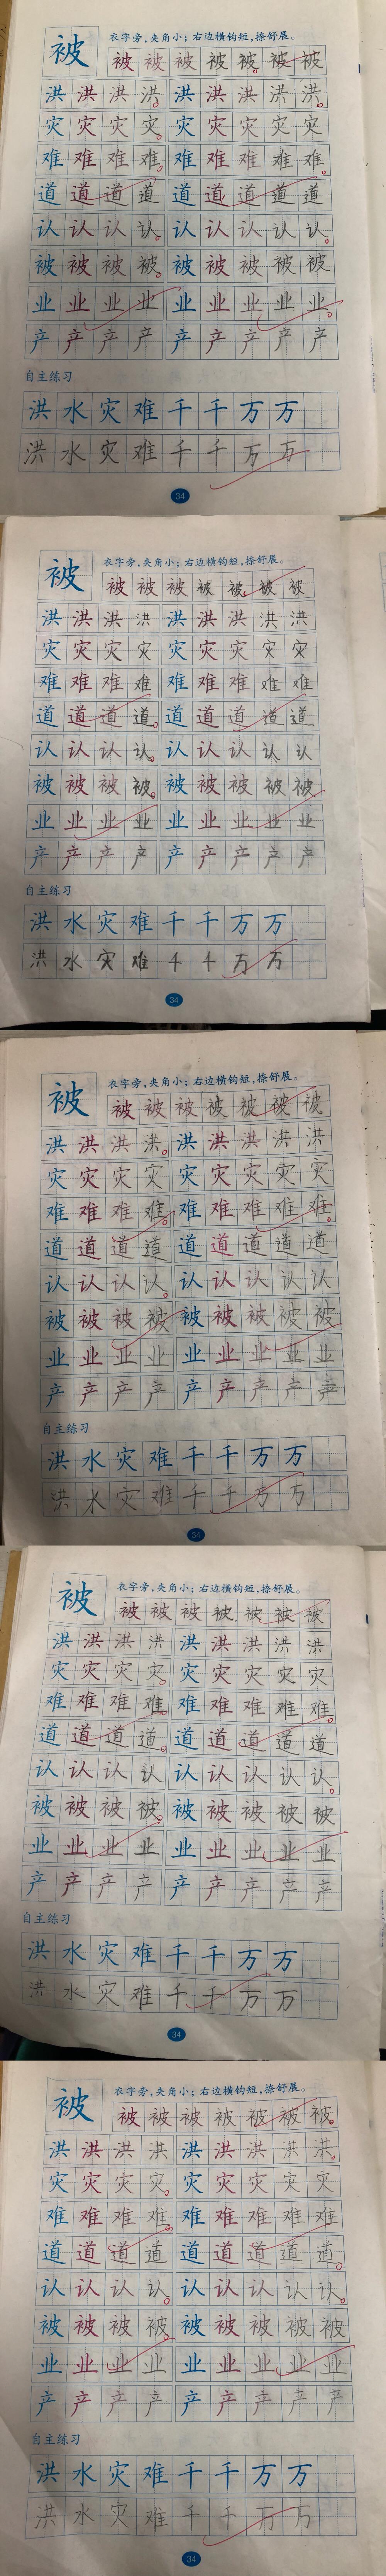 衣字旁,夹角小;右边横钩短,捺舒展。
被 被被被被被被被
洪洪洪洪洪洪洪洪洪
灾灾灾灾灾灾灾灾灾
难难难难难难难难难
道道道道道道道道道
认认认认认认认认认
被被被被被被被被被
业业业业业业业业业
产产产产产产产产产
自主练习
洪水灾难千千万万
洪水灾难千千万万
34
衣字旁,夹角小;右边横钩短,捺舒展。
被 被被被被被被被
洪洪洪洪洪洪洪洪洪
灾灾灾灾灾灾灾灾灾
难难难难难难难难难
道道道道道道道道道
认认认认认认认认认
被被被被被被被被被
业业业业业业业业业
产产产产产产产产产
自主练习
洪水灾难千千万万
洪水灾难千千万万
34
衣字旁,夹角小;右边横钩短,捺舒展。
被 被被被被被被被
洪洪洪洪洪洪洪洪洪
灾灾灾灾灾灾灾灾灾
难难难难难难难难难
道道道道道道道道道
认认认认认认认认认
被被被被被被被被被
业业业业业业业业业
产产产产产产产产产
自主练习
洪水灾难千千万万
洪水灾难千千万万
34
衣字旁,夹角小;右边横钩短,捺舒展。
被 被被被被被被被
洪洪洪洪洪洪洪洪洪
灾灾灾灾灾灾灾灾灾
难难难难难难难难难
道道道道道道道道道
认认认认认认认认认
被被被被被被被被被
业业业业业业业业业
产产产产产产产产产
自主练习
洪水灾难千千万万
洪水灾难千千万万
34
衣字旁,夹角小;右边横钩短,捺舒展。
被 被被被被被被被
洪洪洪洪洪洪洪洪洪
灾灾灾灾灾灾灾灾灾
难难难难难难难难难
道道道道道道道道道
认认认认认认认认认
被被被被被被被被被
业业业业业业业业业
产产产产产产产产产
自主练习
洪水灾难千千万万
洪水灾难千千万万
34